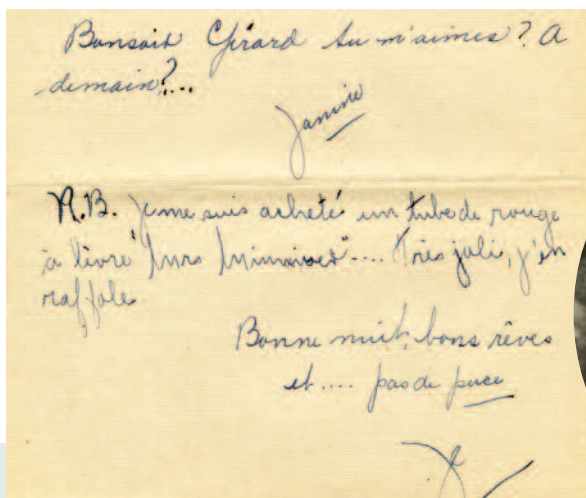 Bonsoir Gérard tu m'aimes? A
demain?...
Janine
N.B. je me suis acheté un tube de rouge
à lèvre "Mrs Miniver".... Très joli, j'en
raffole
Bonne nuit, bons rêves
et.... pas de puce
J